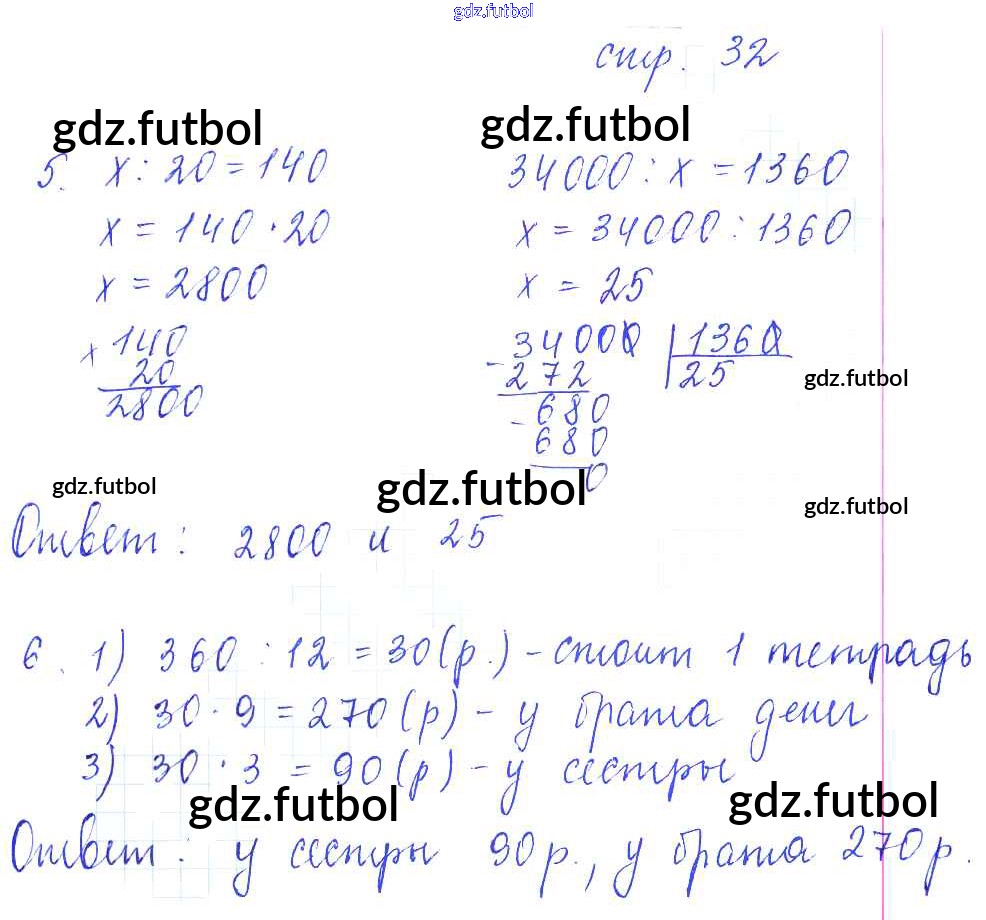 gdz.futbol
стр. 32
gdz.futbol
gdz.futbol
5. x : 20 = 140
x = 140 · 20
x = 2800
× 140
20
2800
34000 : x = 1360
x = 34000 : 1360
x = 25
34000 | 1360
- 272 | 25
- 680
680
0
gdz.futbol
gdz.futbol
gdz.futbol
gdz.futbol
Ответ: 2800 и 25
6. 1) 360 : 12 = 30 (р.) - стоит 1 тетрадь
2) 30 · 9 = 270 (р) - у брата денег
3) 30 · 3 = 90 (р) - у сестры
gdz.futbol
gdz.futbol
Ответ: у сестры 90 р., у брата 270 р.